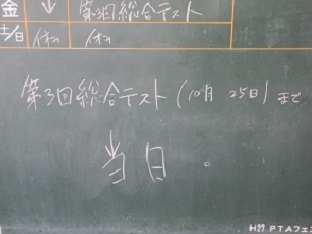 金 ↓ 第3回総合テスト
土/日 休み 休み
第3回総合テスト(10月 25日)まで
当日。
H27 PTAフェ